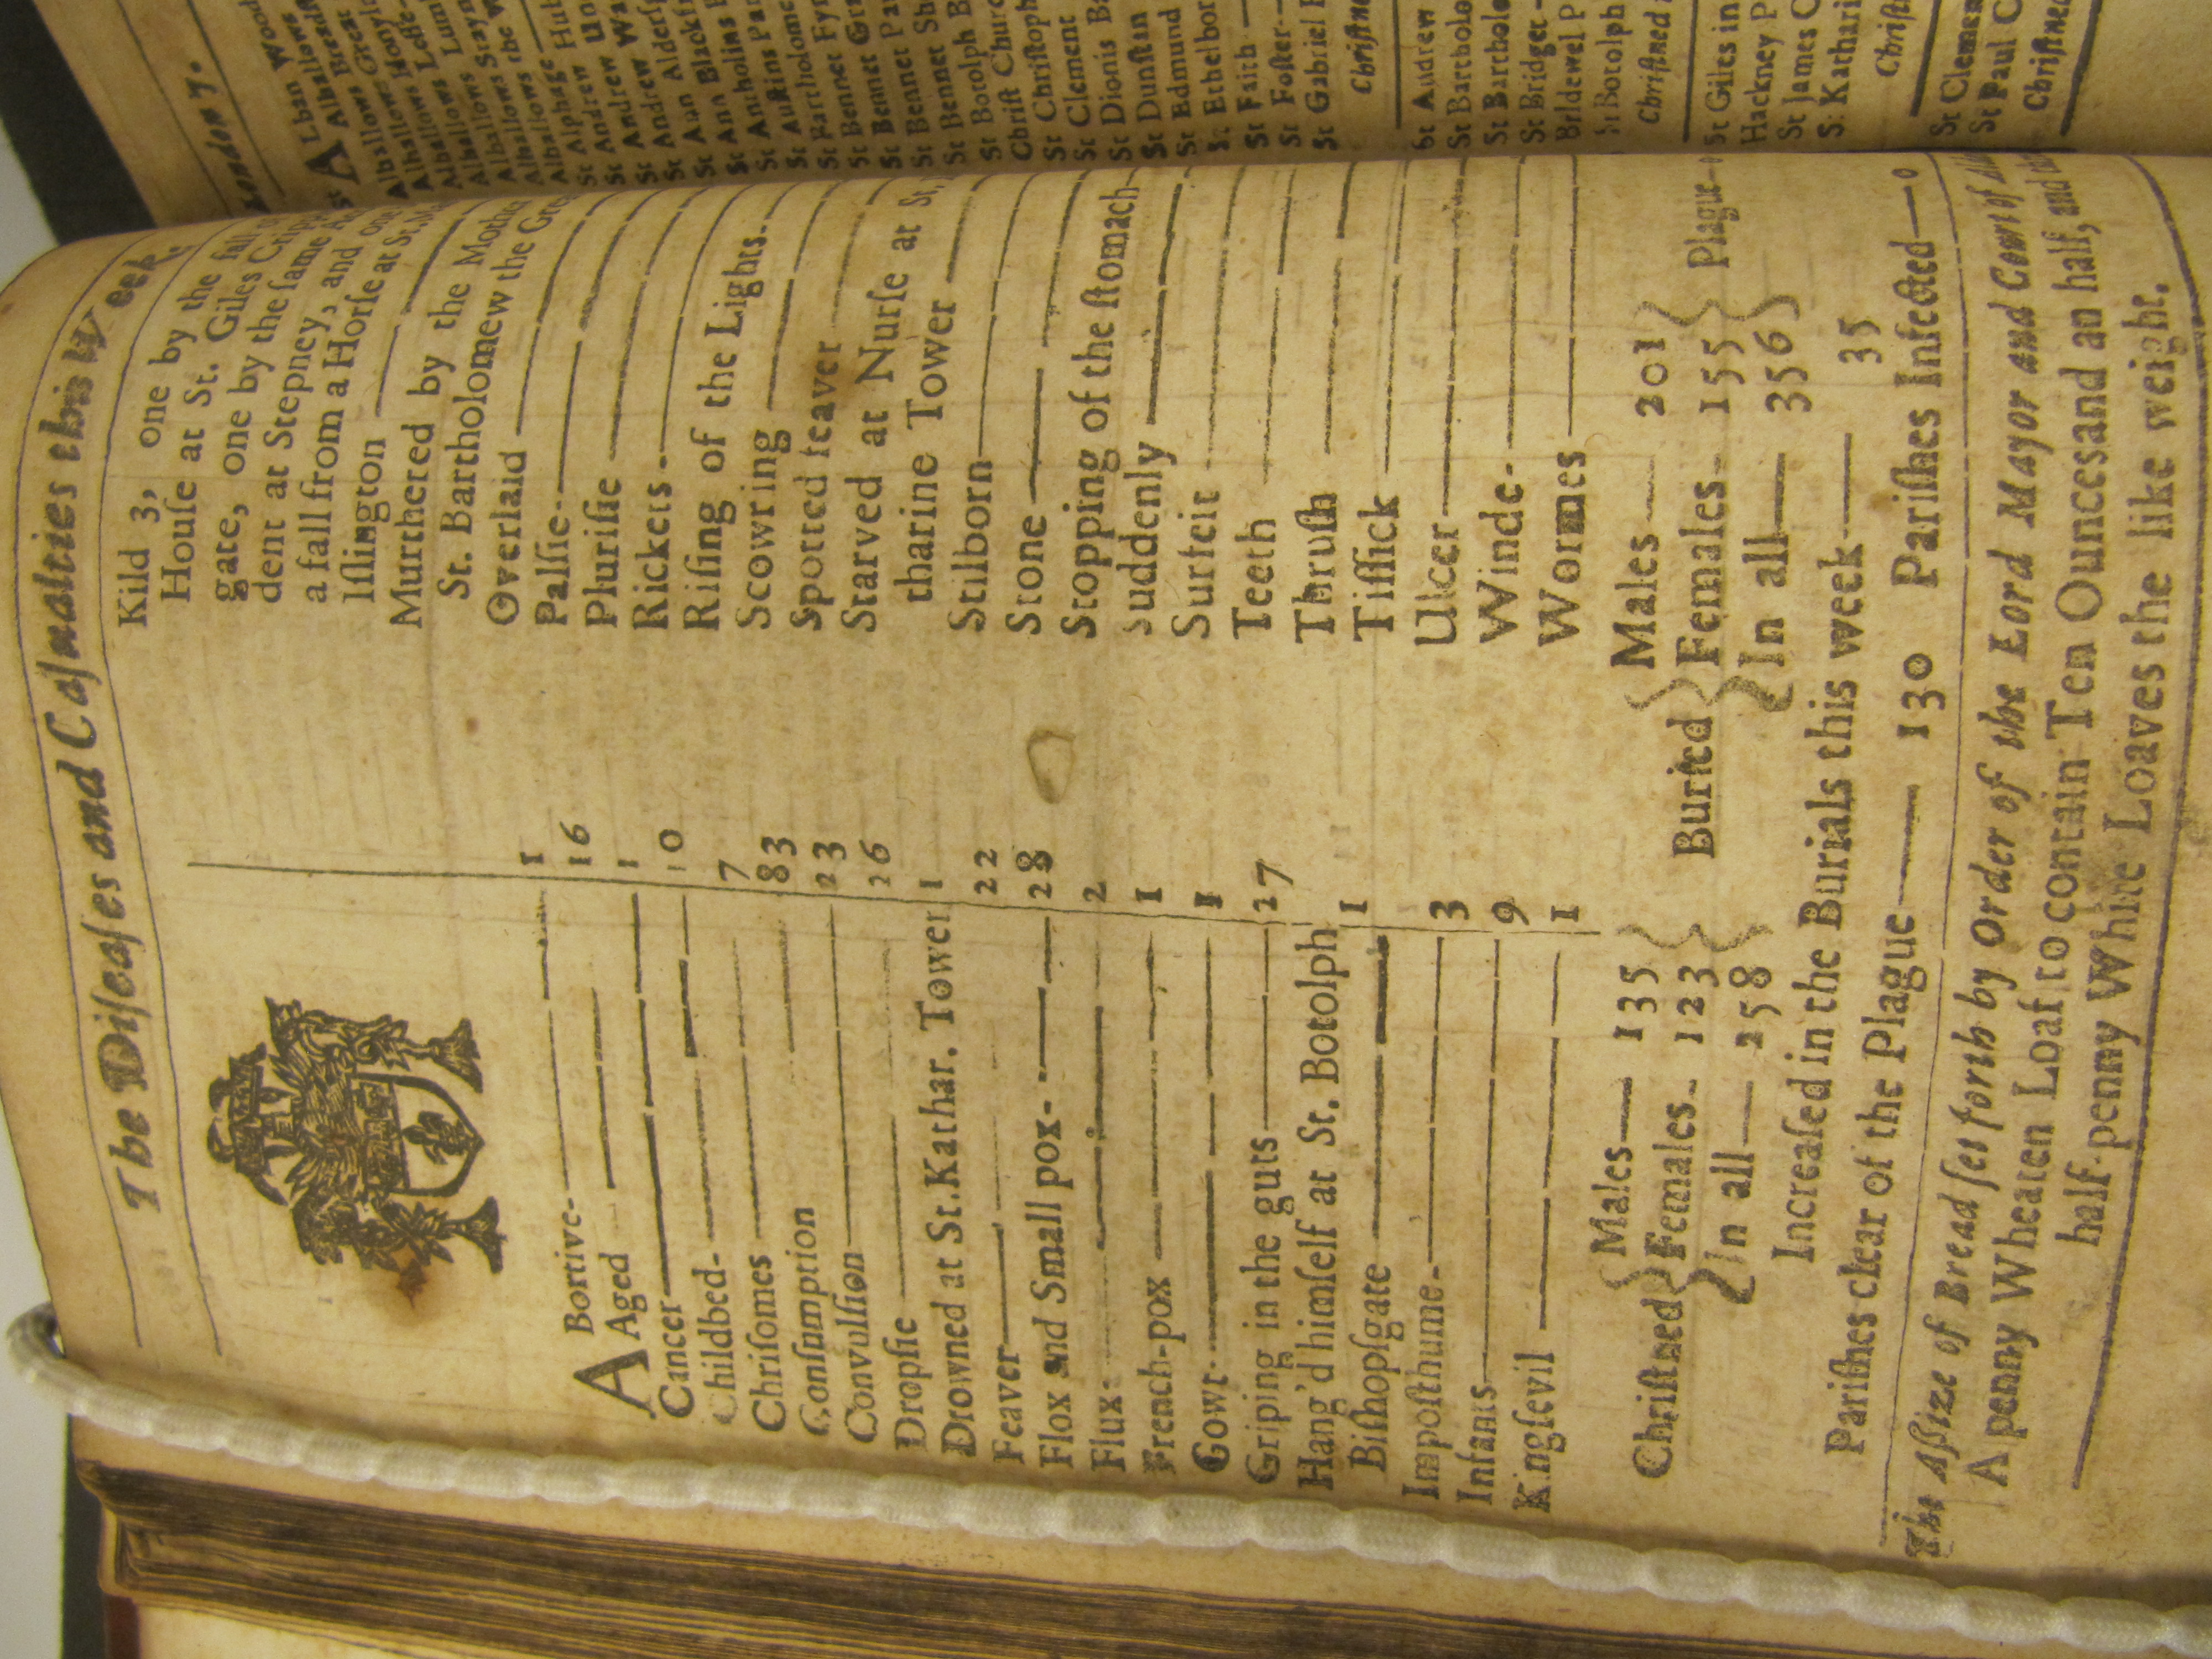 The Diſeaſes and Caſualties this Week
Abortive- 1
Aged 16
Cancer 1
Childbed- 10
Chriſomes 7
Conſumption 83
Convulſion 23
Dropſie 26
Drowned at St.Kathar. Tower 1
Feaver 22
Flox and Small pox- 28
Flux- 2
French-pox 1
Gowt- 1
Griping in the guts 27
Hang'd himſelf at St. Botolph
Biſhopſgate 1
Impoſthume- 3
Infants 9
Kingſevil 1
Kild 3, one by the fall
Houſe at St. Giles
gate, one by the ſame
dent at Stepney, and
a fall from a Horſe at St.
Iſlington
Murthered by the
St. Bartholomew the
Overlaid
Palſie-
Pluriſie
Rickets -
Riſing of the Lights-
Scowring
Spotted feaver
Starved at Nurſe at St.
tharine Tower
Stilborn
Stone
Stopping of the ſtomach
Suddenly
Surfeit
Teeth
Thruſh
Tiſſick
Ulcer
Winde-
Wormes
Chriſtned { Males 135 Females- 123 In all 258 } Buried { Males 201 Females- 155 In all 356 } Plague-0
Increaſed in the Burials this week 35
Pariſhes clear of the Plague 130 Pariſhes Infected 0
The Aſsize of Bread ſet forth by Order of the Lord Mayor and Court of
A penny Wheaten Loaf to contain Ten Ounces and an half, and
half-penny White Loaves the like weight.
London 7.
Alban Wood
Alhallows
Alhallows Honyl
Alhallows Leſſe-
Alhallows Lum
Alhallows Stayn
Alhallows the W
Alphage
St Andrew
St Andrew
St Ann
St Ann Blackfr
St Antholins
St Auſtins Par
St Bartholome
St Bennet Fyn
St Bennet Gra
St Bennet Pau
St Bennet She
St Botolph B
Chriſt Churc
St Chriſtoph
St Clement
St Dionis Ba
St Dunſtan
St Edmund
St Ethelbor
St Faith
St Foſter-
St Gabriel F
Chriſtne
St Andrew
St Bartholo
St Bartholo
St Bridget -
Bridewel P
St Botolph
Chriſtned
St Giles in
Hackney P
St James C
S. Kathari
Chriſt
St Clemen
St Paul C
Chriſtned